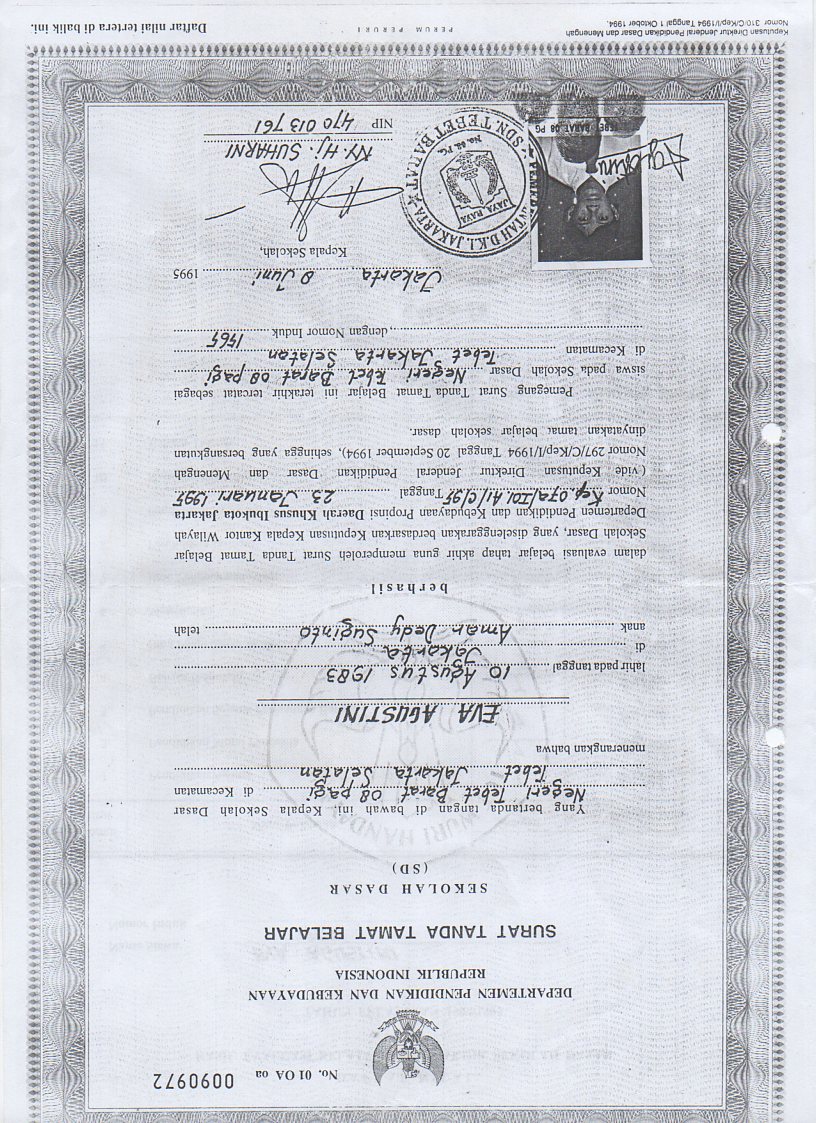 No. 01 OA oa 0090972
DEPARTEMEN PENDIDIKAN DAN KEBUDAYAAN
REPUBLIK INDONESIA
SURAT TANDA TAMAT BELAJAR
SEKOLAH DASAR
(SD)
Yang bertanda tangan di bawah ini, Kepala Sekolah Dasar
Negeri Tebet Barat 08 pagi di Kecamatan
Tebet Jakarta Selatan
menerangkan bahwa
EVA AGUSTINI
lahir pada tanggal 10 Agustus 1983
di Jakarta
anak Aman Dedy Suginto telah
berhasil
dalam evaluasi belajar tahap akhir guna memperoleh Surat Tanda Tamat Belajar
Sekolah Dasar, yang diselenggarakan berdasarkan Keputusan Kepala Kantor Wilayah
Departemen Pendidikan dan Kebudayaan Propinsi Daerah Khusus Ibukota Jakarta
Nomor Kep.07a/I01.A1/C/95 Tanggal 23 Januari 1995
(vide Keputusan Direktur Jenderal Pendidikan Dasar dan Menengah
Nomor 297/C/Kep/I/1994 Tanggal 20 September 1994), sehingga yang bersangkutan
dinyatakan tamat belajar sekolah dasar.
Pemegang Surat Tanda Tamat Belajar ini terakhir tercatat sebagai
siswa pada Sekolah Dasar Negeri Tebet Barat 08 pagi
di Kecamatan Tebet Jakarta Selatan
, dengan Nomor Induk 1565
Jakarta, 8 Juni 1995
Kepala Sekolah,
Agustini
TEBET BARAT 08 PG
PEMERINTAH D.K.I. JAKARTA
JAYA RAYA
No. 08. PG.
SDN. TEBET BARAT
NY. Hj. SUHARNI
NIP 470 013 761
Keputusan Direktur Jenderal Pendidikan Dasar dan Menengah
Nomor 310/C/Kep/I/1994 Tanggal 1 Oktober 1994.
PERUM PERURI
Daftar nilai tertera di balik ini.